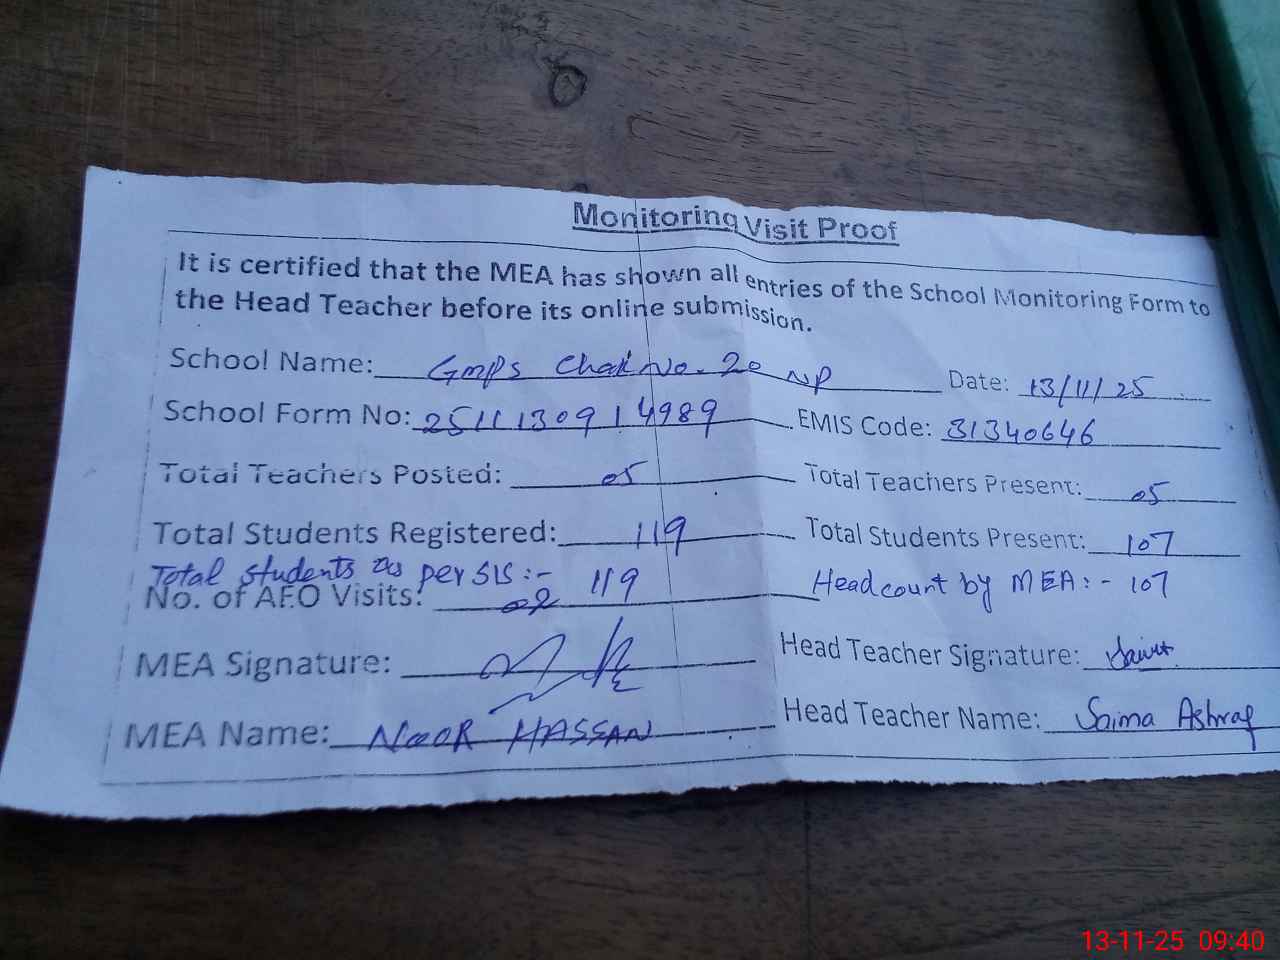 Monitoring Visit Proof
It is certified that the MEA has shown all entries of the School Monitoring Form to
the Head Teacher before its online submission.
School Name: Gmps Chak No. 20 NP Date: 13/11/25
School Form No: 2511130914989 EMIS Code: 31340646
Total Teachers Posted: 05 Total Teachers Present: 05
Total Students Registered: 119 Total Students Present: 107
Total students as per SIS:- 119 Headcount by MEA:- 107
No. of AEO Visits: 02
MEA Signature: Head Teacher Signature:
MEA Name: NOOR HASSAN Head Teacher Name: Saima Ashraf
13-11-25 09:40